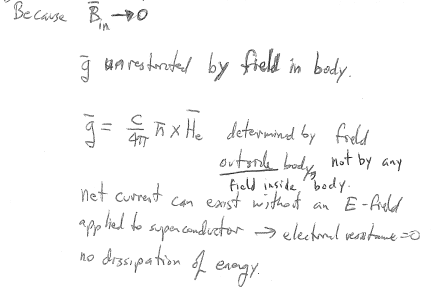 Because B̄in → 0
ḡ unrestricted by field in body.
ḡ = c/4π n̄ × H̄e determined by field
outside body, not by any
field inside body.
net current can exist without an E-field
applied to superconductor → electrical resistance = 0
no dissipation of energy.